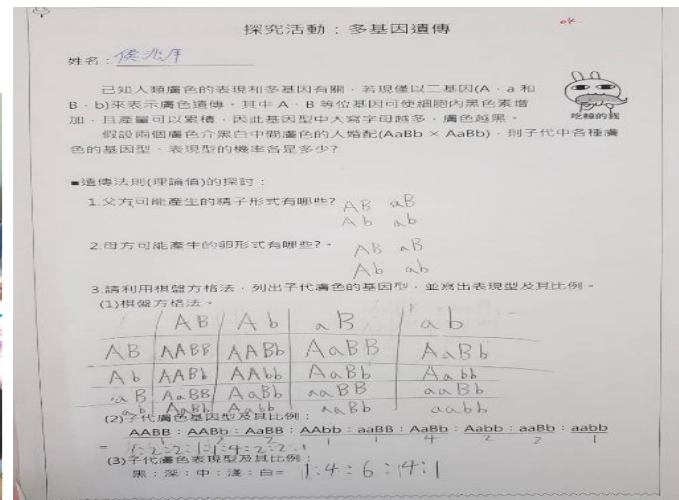 ok.
探究活動：多基因遺傳
姓名：侯兆
已知人類膚色的表現和多基因有關，若現僅以二基因(A、a 和
B、b)來表示膚色遺傳。其中 A、B 等位基因可使細胞內黑色素增
加，且產量可以累積，因此基因型中大寫字母越多，膚色越黑。
假設兩個膚色介黑白中間膚色的人婚配(AaBb × AaBb)，則子代中各種膚
色的基因型、表現型的機率各是多少?
吃驚的我
■遺傳法則(理論值)的探討：
1.父方可能產生的精子形式有哪些? AB aB
Ab ab
2.母方可能產生的卵形式有哪些?。 AB aB
Ab ab
3.請利用棋盤方格法，列出子代膚色的基因型，並寫出表現型及其比例。
(1)棋盤方格法。
AB Ab aB ab
AB AABB AABb AaBB AaBb
Ab AABb AAbb AaBb Aabb
aB AaBB AaBb aaBB aaBb
ab AaBb Aabb aaBb aabb
(2)子代膚色基因型及其比例：
AABB : AABb : AaBB : AAbb : aaBB : AaBb : Aabb : aaBb : aabb
1 2 2 1 1 4 2 2 1
= 1:2:2:1:1:4:2:2:1
(3)子代膚色表現型及其比例：
黑：深：中：淺：白= 1:4:6:4:1